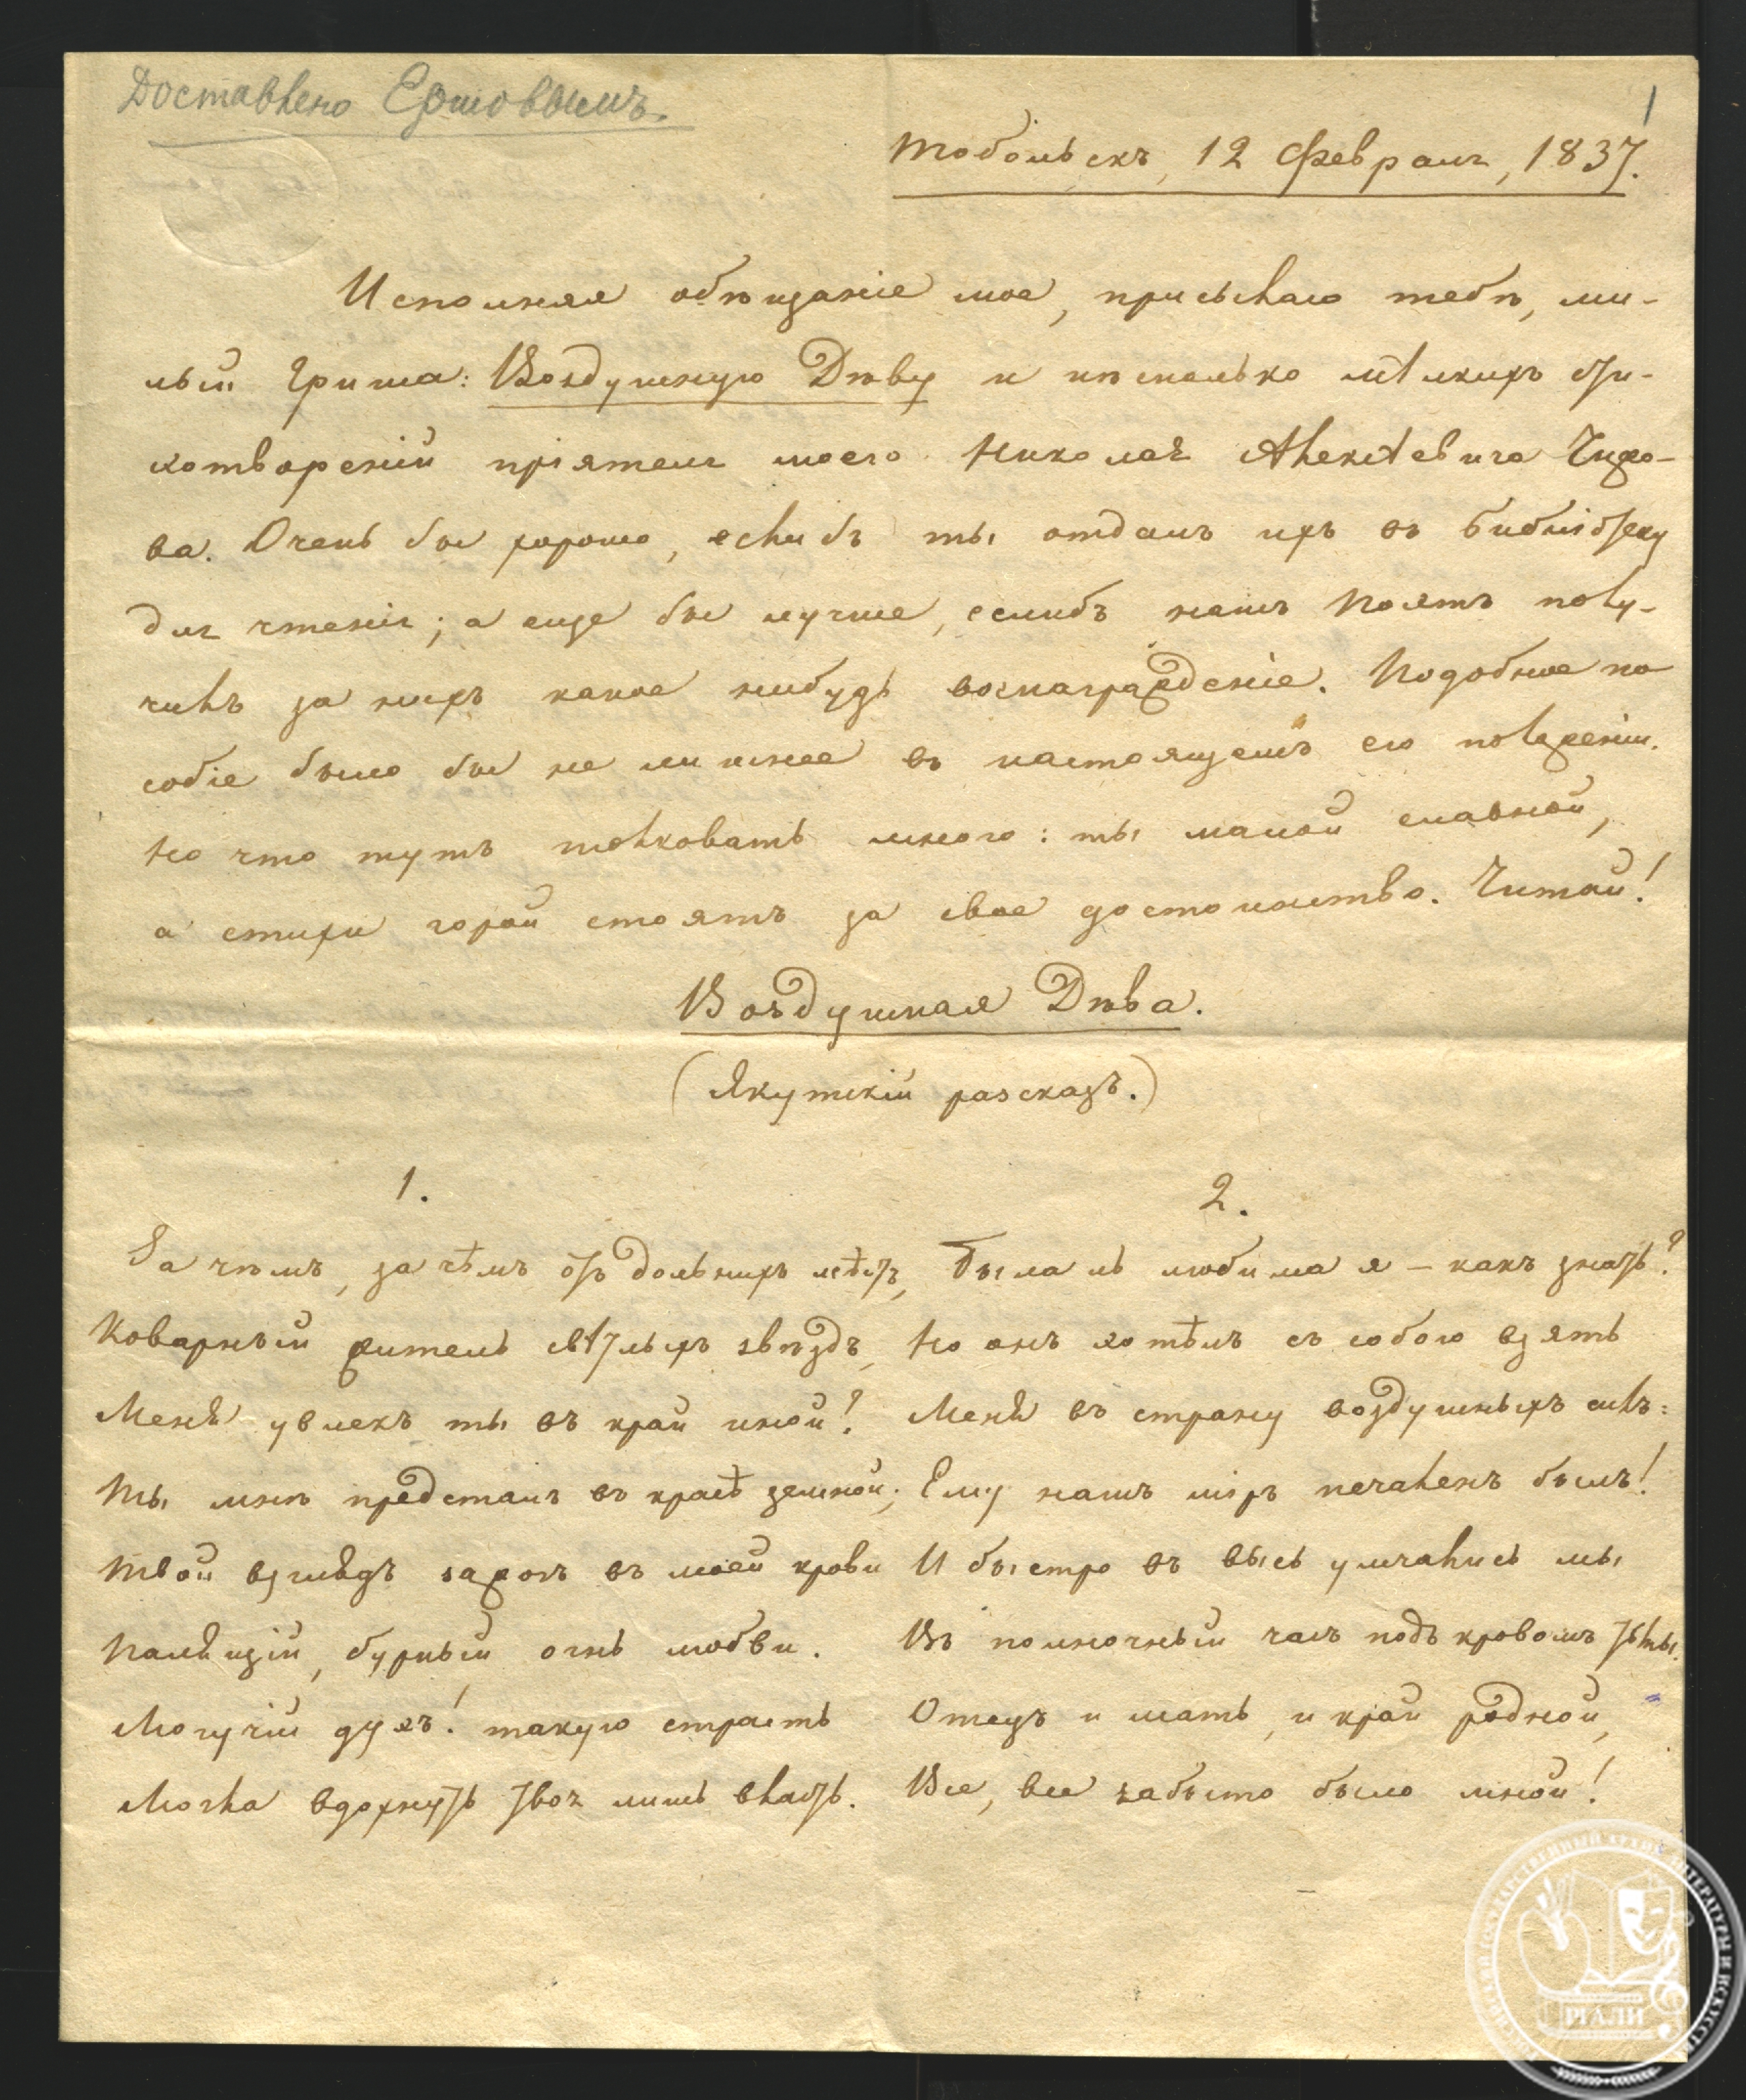 Доставлено Ершовымъ.
1
Тобольскъ, 12 Февраля, 1837.
Исполняя обѣщаніе мое, присылаю тебѣ, ми-
лый Гриша: Воздушную Дѣву и нѣсколько мѣлкихъ сти-
хотвореній пріятеля моего Николая Алексѣевича Чижо-
ва. Очень бы хорошо, еслибъ ты отдалъ ихъ въ Библіотеку
для чтенія; а еще бы лучше, еслибъ нашъ Поэтъ полу-
чилъ за нихъ какое нибудь вознагражденіе. Подобное по
собіе было бы не лишнее въ настоящемъ его положеніи.
Но что тутъ толковать много: ты малой славной,
а стихи горой стоятъ за свое достоинство. Читай!
Воздушная Дѣва.
(Якутскій разсказъ.)
1.
За чѣмъ, за чѣмъ отъ дольнихъ мѣстъ,
Коварный житель свѣтлыхъ звѣздъ,
Меня увлекъ ты въ край иной?
Ты мнѣ предсталъ въ краѣ земной;
Твой взглядъ зажогъ въ моей крови
Палящій, бурный огнь любви.
Могучій духъ! такую страсть
Могла вдохнуть твоя лишь власть.
2.
Была ль любима я – какъ знать?
Но онъ хотѣлъ съ собою взять
Меня въ страну воздушныхъ силъ:
Ему нашъ міръ печаленъ былъ!
И быстро въ высь умчались мы
Въ полночный часъ подъ кровомъ тьмы.
Отецъ и мать, и край родной,
Все, все забыто было мной!
РОССИЙСКИЙ ГОСУДАРСТВЕННЫЙ АРХИВ ЛИТЕРАТУРЫ И ИСКУССТВА
РГАЛИ